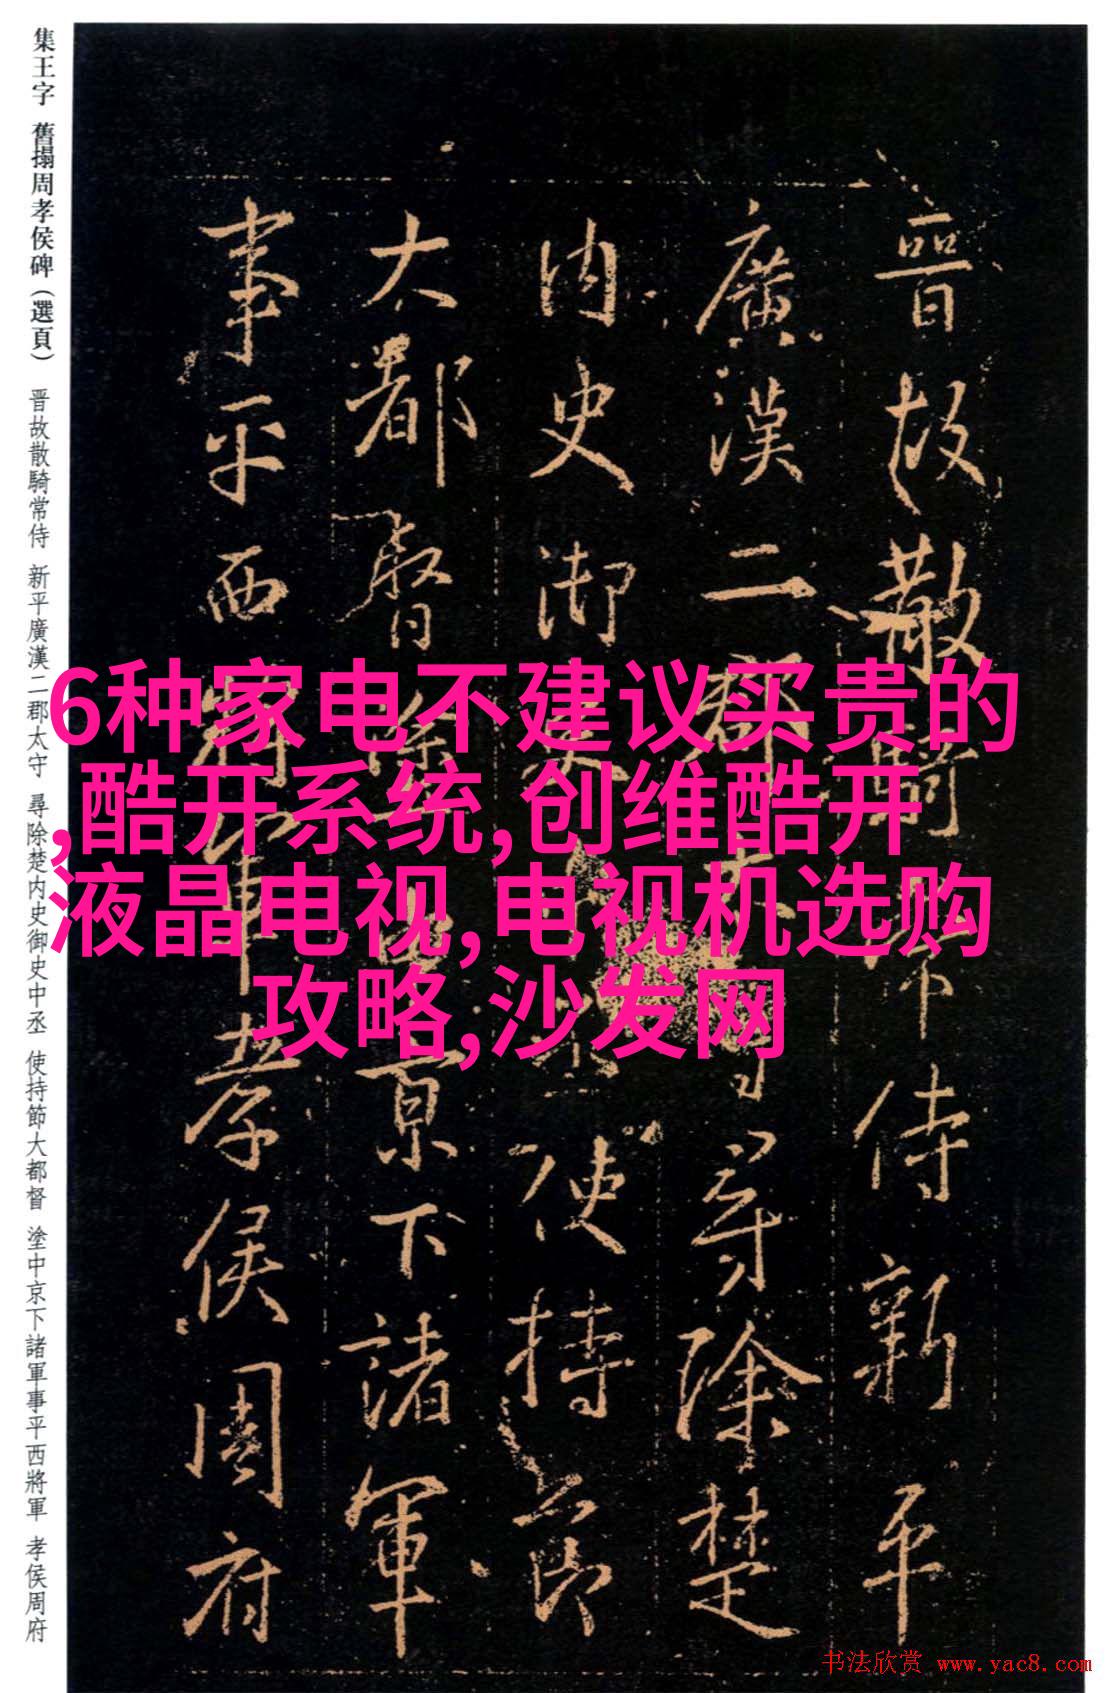 集王字 舊搨周孝侯碑(選頁) 晋故散騎常侍 新平廣漢二郡太守 尋除楚内史御史中丞 使持節大都督 塗中京下諸軍事平西將軍 孝侯周府
6种家电不建议买贵的
,酷开系统,创维酷开
液晶电视,电视机选购
攻略,沙发网
晉故散騎常侍新平
廣漢二郡太守尋除楚
内史御史中丞使持節
大都督除中京下諸軍
事平西將軍孝侯周府
书法欣赏 www.yac8.com